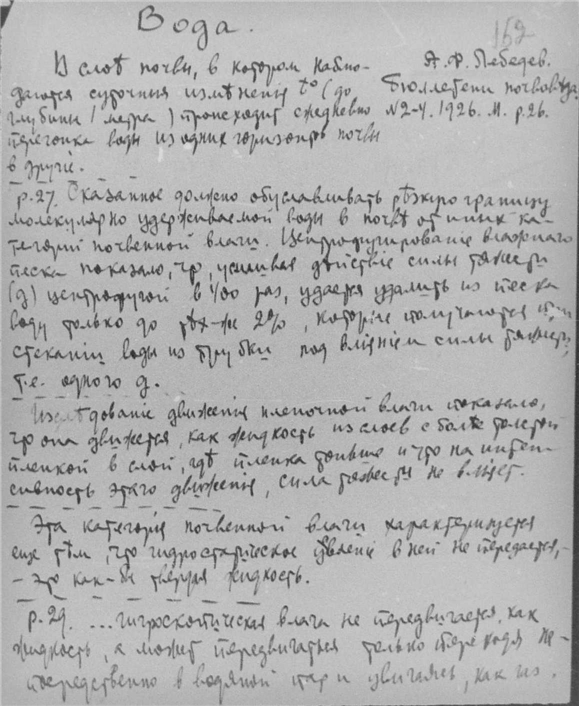 Вода.
162
В слоѣ почвы, в котором наблю-
даются суточныя измѣненія t° (до
глубины 1 метра) происходит ежедневно
перегонка воды из одних горизонтов почвы
в другіе.
А. Ф. Лебедев.
Бюллетени почвовѣда
N 2-4. 1926. М. p. 26.
p. 27. Сказанное должно обуславливать рѣзкую границу
молекулярно удерживаемой воды в почвѣ от иных ка-
тегорій почвенной влаги. Центрофугированіе влажнаго
песка показало, что, усиливая дѣйствіе силы тяжести
(g) центрофугой в 400 раз, удается удалить из песка
воду только до тѣх-же 2%, которые получаются при
стеканіи воды из трубки под вліяніем силы тяжести,
т.е. одного g.
Изслѣдованіе движенія пленочной влаги показало,
что она движется, как жидкость из слоев с болѣе толстой
пленкой в слои, гдѣ пленка тоньше и что на интен-
сивность этого движенія, сила тяжести не вліяет.
Эта категорія почвенной влаги характеризуется
еще тѣм, что гидростатическое давленіе в ней не передается,-
- это как-бы твердая жидкость.
p. 29. ...гигроскопическая влага не передвигается, как
жидкость, а может передвигаться только переходя не-
посредственно в водяной пар и двигаясь, как газ.